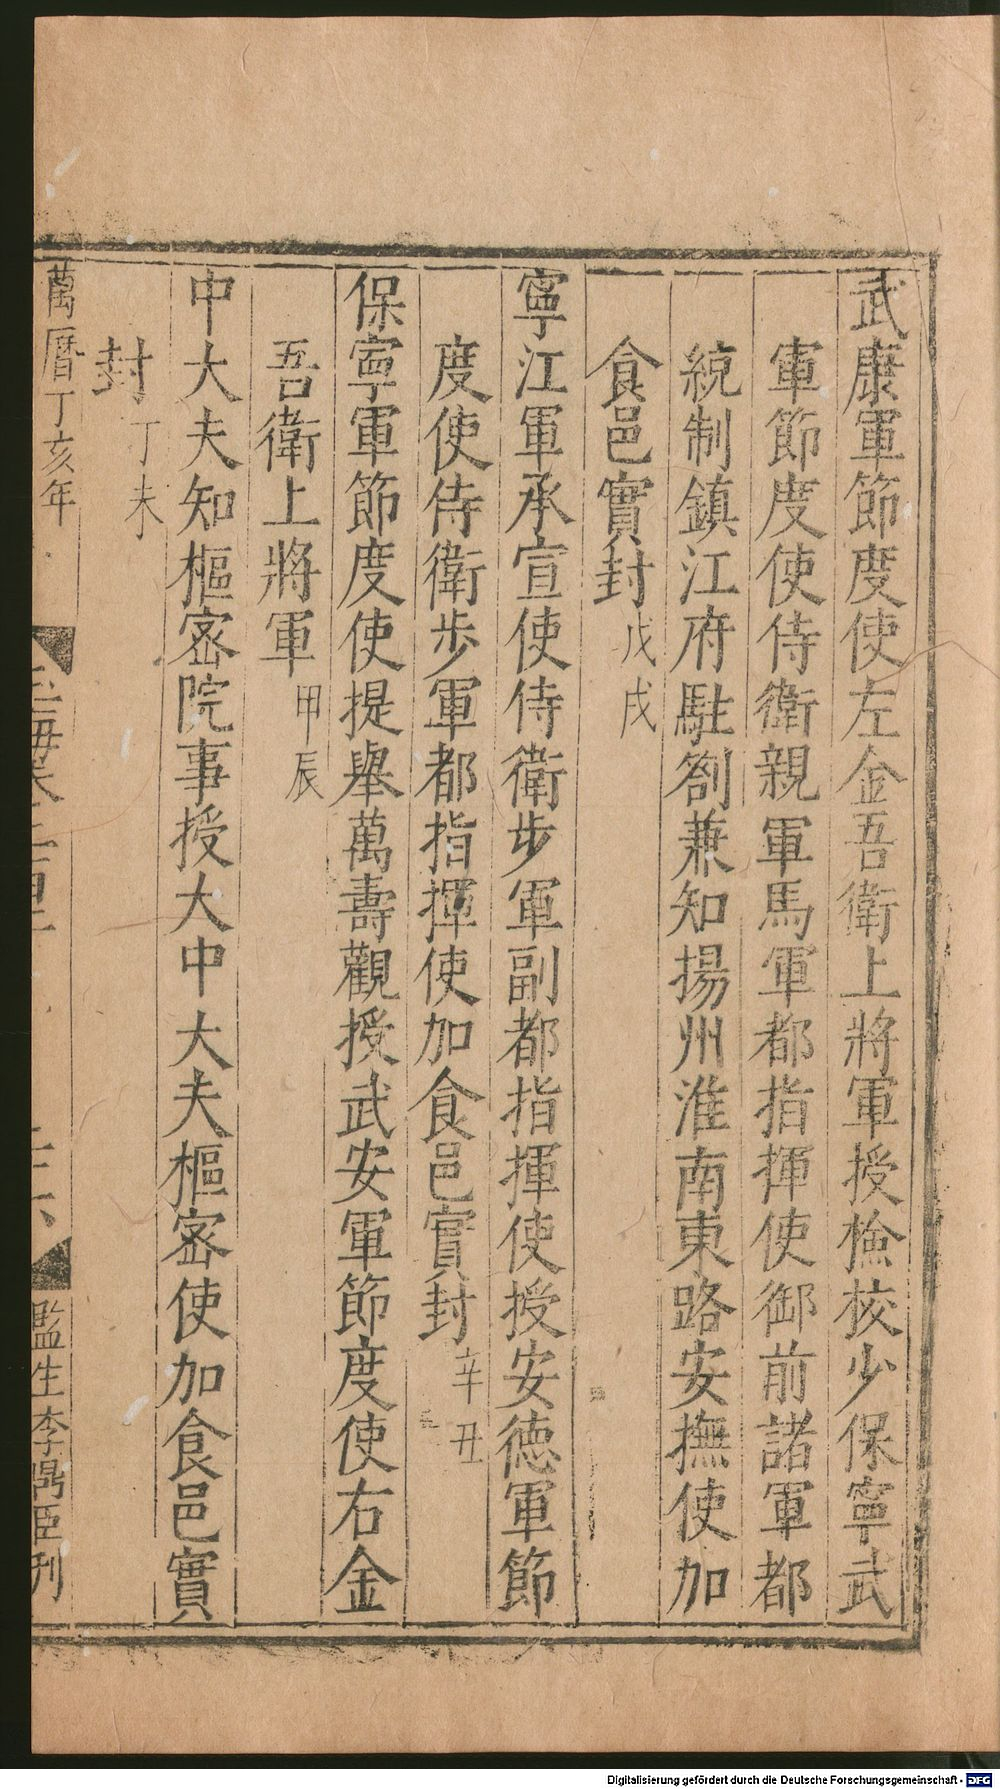 武康軍節度使左金吾衛上將軍授檢校少保寧武
軍節度使侍衛親軍馬軍都指揮使御前諸軍都
統制鎮江府駐劄兼知揚州淮南東路安撫使加
食邑實封戊戌
寧江軍承宣使侍衛步軍副都指揮使授安德軍節
度使侍衛步軍都指揮使加食邑實封辛丑
保寧軍節度使提舉萬壽觀授武安軍節度使右金
吾衛上將軍甲辰
中大夫知樞密院事授大中大夫樞密使加食邑實
封丁未
萬曆丁亥年
監生李鼎臣刊
Digitalisierung gefördert durch die Deutsche Forschungsgemeinschaft - DFG